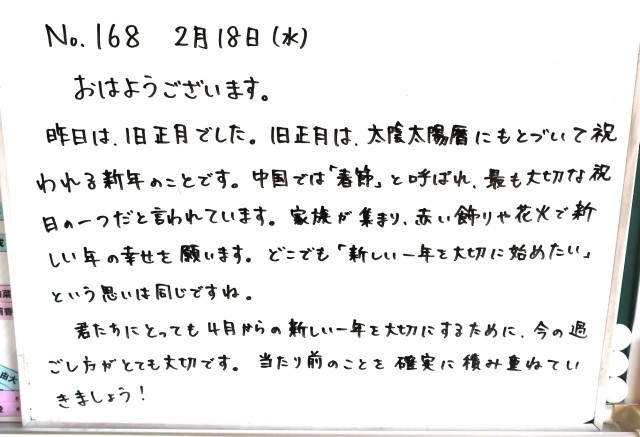 No.168 2月18日(水)
おはようございます。
昨日は、旧正月でした。旧正月は、太陰太陽暦にもとづいて祝
われる新年のことです。中国では「春節」と呼ばれ、最も大切な祝
日の一つだと言われています。家族が集まり、赤い飾りや花火で新
しい年の幸せを願います。どこでも「新しい一年を大切に始めたい」
という思いは同じですね。
君たちにとっても4月からの新しい一年を大切にするために、今の過
ごし方がとても大切です。当たり前のことを確実に積み重ねてい
きましょう!